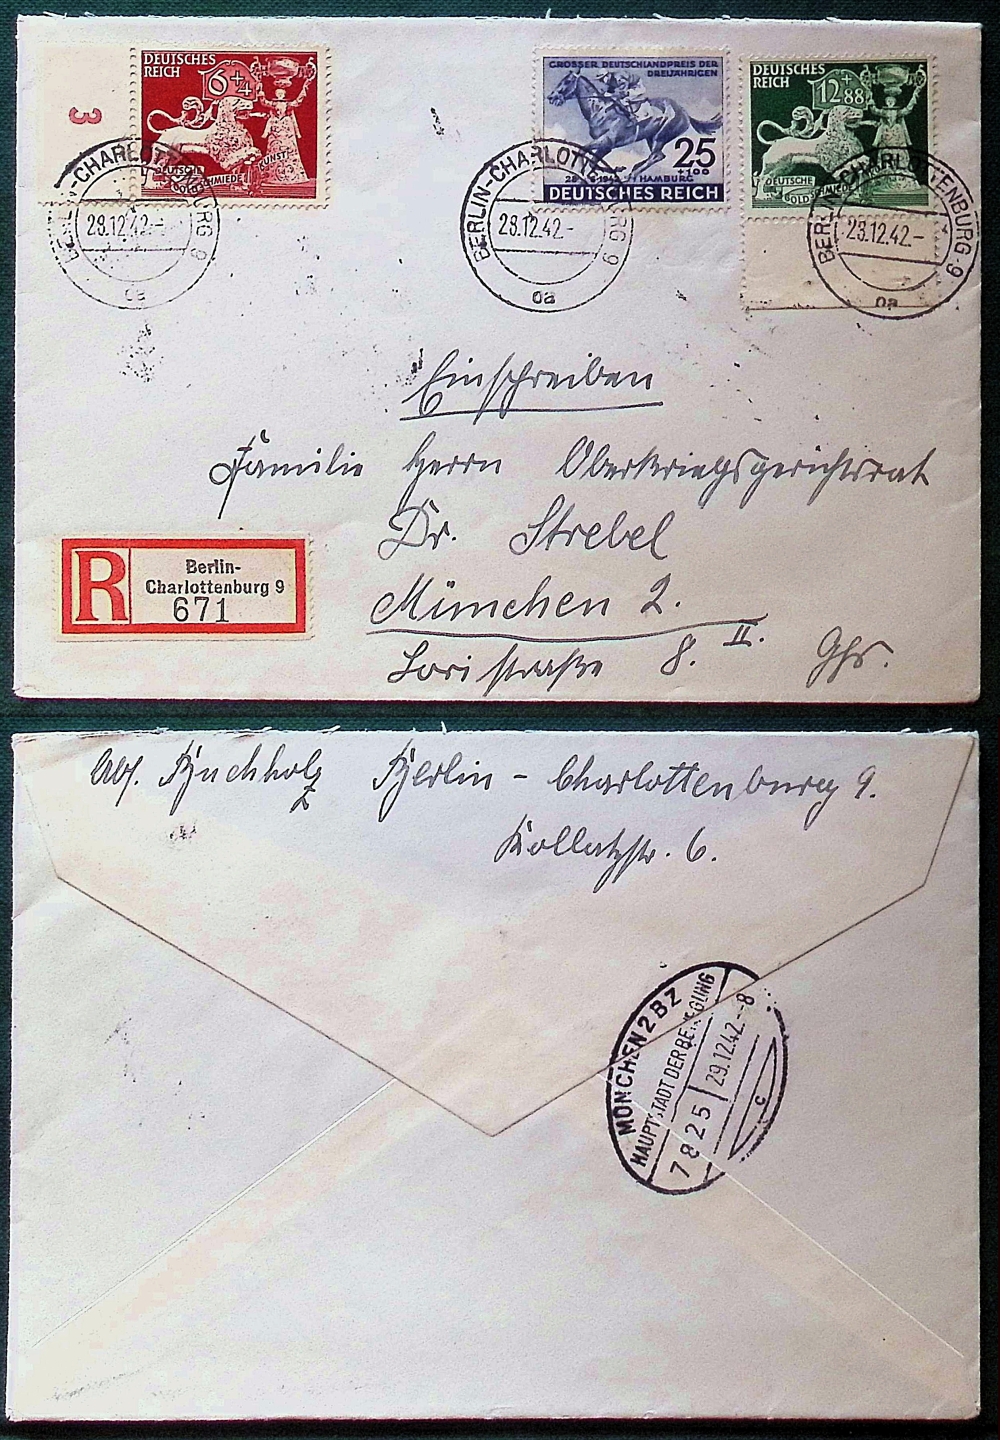 3
DEUTSCHES
REICH
6+4
DEUTSCHE
GOLDSCHMIEDE
KUNST
GROSSER DEUTSCHLANDPREIS DER
DREIJÄHRIGEN
25
+100
HAMBURG
DEUTSCHES REICH
DEUTSCHES
REICH
12+88
DEUTSCHE
BERLIN-CHARLOTTENBURG 9
28.12.42.-
oa
BERLIN-CHARLOTTENBURG 9
28.12.42.-
oa
BERLIN-CHARLOTTENBURG 9
28.12.42.-
oa
Einschreiben
Familie Herrn Oberkriegsgerichtsrat
Dr. Strebel
München 2.
Loristraße 8. II. Ghs.
R
Berlin-
Charlottenburg 9
671
Abs. Buchholz Berlin - Charlottenburg 9.
Kollatzstr. 6.
MÜNCHEN 2 BZ
HAUPTSTADT DER BEWEGUNG
7825 29.12.42.-8
c